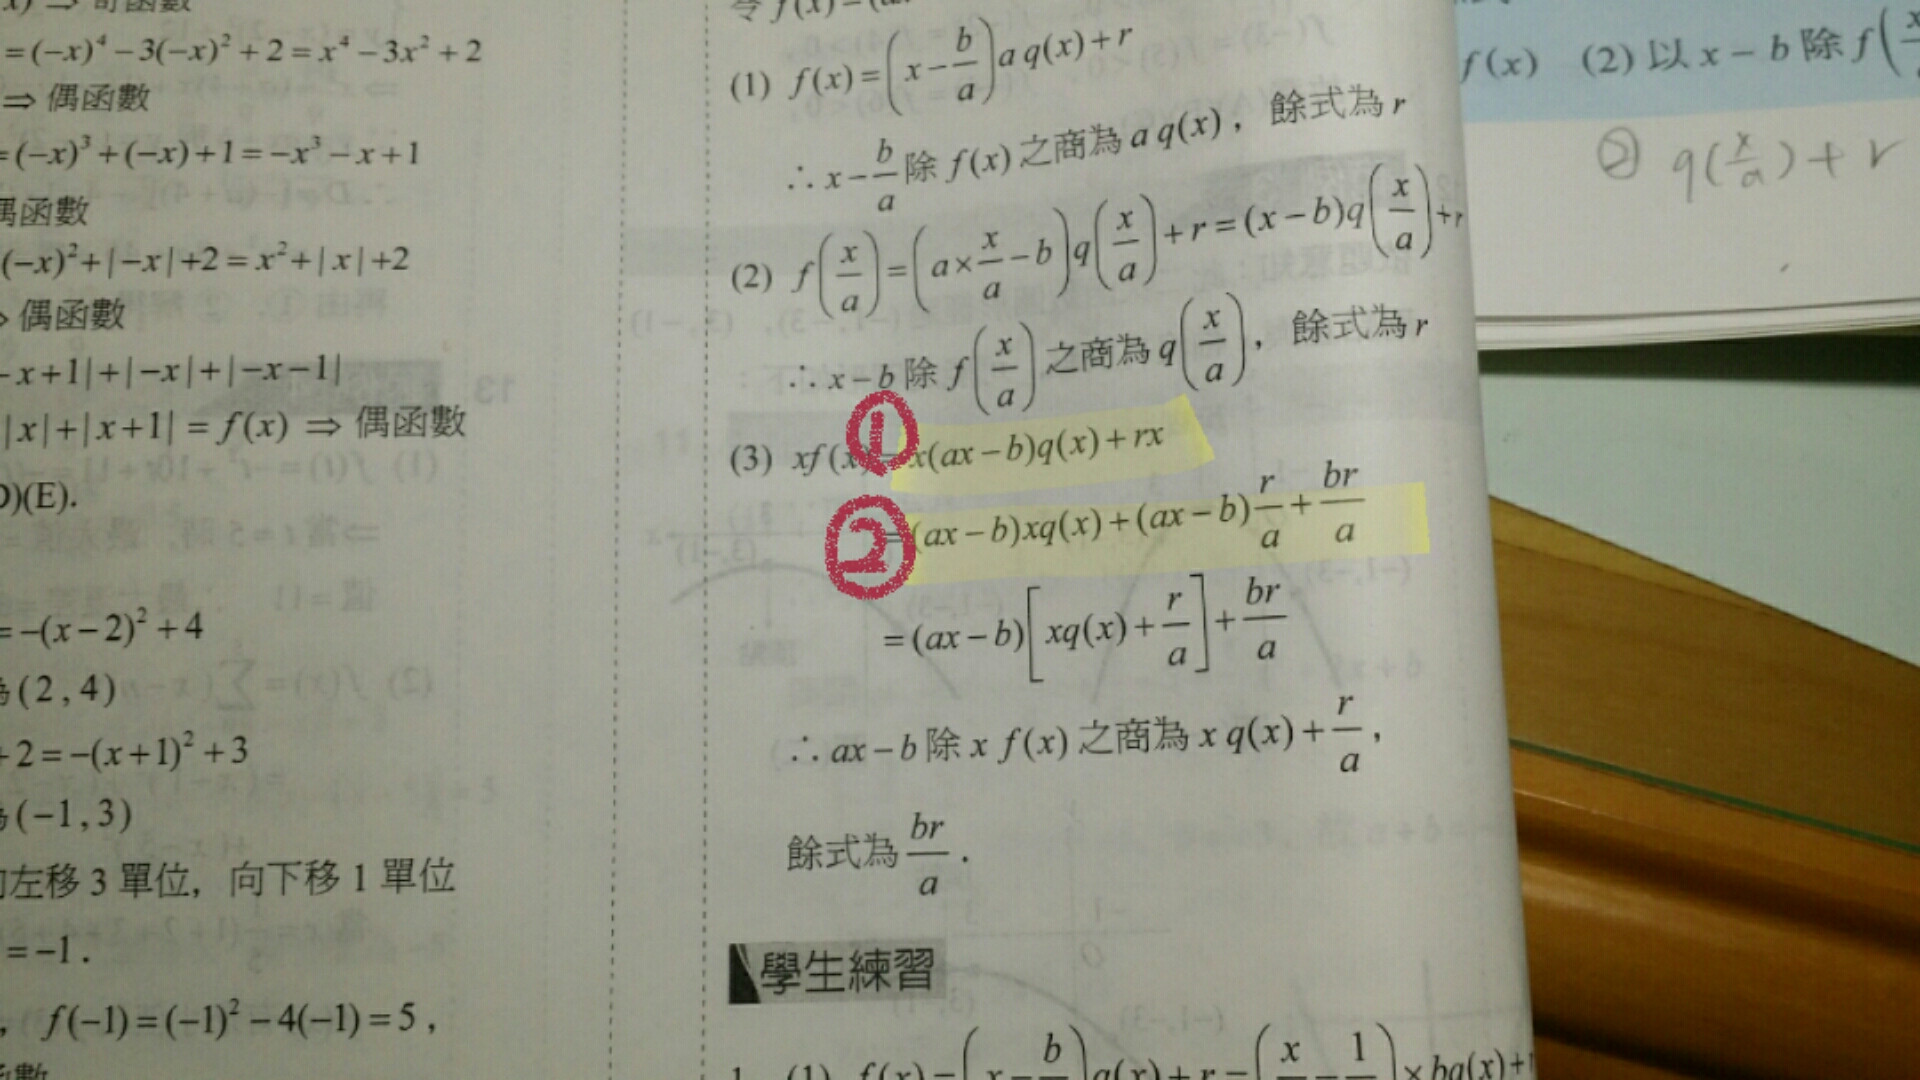 = (−x)⁴ − 3(−x)² + 2 = x⁴ − 3x² + 2
⇒ 偶函數
= (−x)³ + (−x) + 1 = −x³ − x + 1
偶函數
(−x)² + |−x| + 2 = x² + |x| + 2
偶函數
−x+1| + |−x| + |−x−1|
|x| + |x+1| = f(x) ⇒ 偶函數
)(E).
= −(x−2)² + 4
(2, 4)
+2 = −(x+1)² + 3
(−1, 3)
左移 3 單位，向下移 1 單位
= −1.
, f(−1) = (−1)² − 4(−1) = 5,
(1) f(x) = (x − b/a) a q(x) + r
∴ x − b/a 除 f(x) 之商為 a q(x)，餘式為 r
(2) f(x/a) = (a × x/a − b) q(x/a) + r = (x − b) q(x/a) + r
∴ x − b 除 f(x/a) 之商為 q(x/a)，餘式為 r
① 
(3) xf(x) = x(ax − b)q(x) + rx
②
= (ax − b)xq(x) + (ax − b) r/a + br/a
= (ax − b)[xq(x) + r/a] + br/a
∴ ax − b 除 x f(x) 之商為 x q(x) + r/a，
餘式為 br/a.
學生練習
f(x) (2) 以 x − b 除 f(
② q(x/a) + r